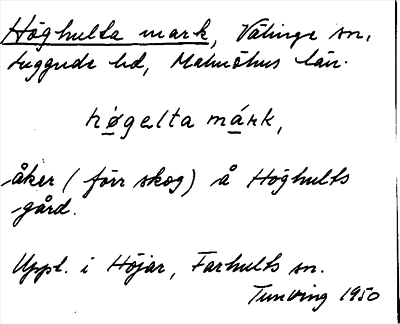 Höghulta mark, Välinge sn,
Luggude hd, Malmöhus län.
høgelta márk,
åker (förr skog) å Höghults
gård.
Uppl. i Höjar, Farhults sn.
Tunving 1950